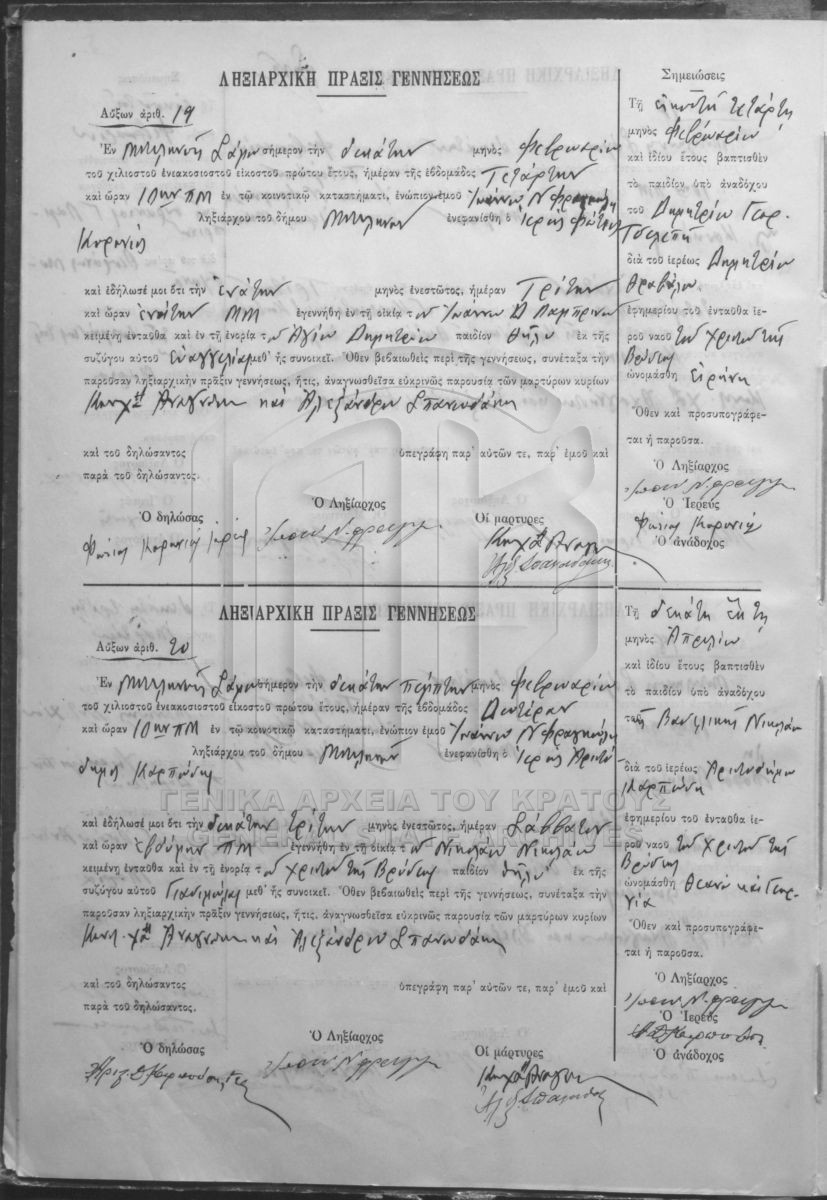 ΛΗΞΙΑΡΧΙΚΗ ΠΡΑΞΙΣ ΓΕΝΝΗΣΕΩΣ
Αὔξων ἀριθ. 19
Ἐν Μυτιληνιοῖς Σάμου σήμερον τὴν δεκάτην μηνὸς Φεβρουαρίου
τοῦ χιλιοστοῦ ἐνιακοσιοστοῦ εἰκοστοῦ πρώτου ἔτους, ἡμέραν τῆς ἑβδομάδος Τετάρτην
καὶ ὥραν 10ην ΠΜ ἐν τῷ κοινοτικῷ καταστήματι, ἐνώπιον ἐμοῦ Ἰωάννου Ν Φραγκούλη
ληξιάρχου τοῦ δήμου ἐνεφανίσθη ὁ Ἱερεὺς Φώτιος
καὶ ἐδήλωσέ μοι ὅτι τὴν ἐνάτην μηνὸς ἐνεστῶτος, ἡμέραν Τρίτην
καὶ ὥραν ἐνάτην ΜΜ ἐγεννήθη ἐν τῇ οἰκίᾳ του Ἰωάννου Δ Λαμπρινοῦ
κειμένῃ ἐνταῦθα καὶ ἐν τῇ ἐνορίᾳ του Ἁγίου Δημητρίου παιδίον θῆλυ ἐκ τῆς
συζύγου αὐτοῦ Εὐαγγελίας μεθ' ἧς συνοικεῖ. Ὅθεν βεβαιωθεὶς περὶ τῆς γεννήσεως, συνέταξα τὴν
παροῦσαν ληξιαρχικὴν πρᾶξιν γεννήσεως, ἥτις, ἀναγνωσθεῖσα εὐκρινῶς παρουσίᾳ τῶν μαρτύρων κυρίων
καὶ Ἀλεξάνδρου Σπανουδάκη
καὶ τοῦ δηλώσαντος ὑπεγράφη παρ' αὐτῶν τε, παρ' ἐμοῦ καὶ
παρὰ τοῦ δηλώσαντος.
Ὁ δηλώσας
Ὁ Ληξίαρχος
Οἱ μάρτυρες
Σημειώσεις
Τῇ εἰκοστῇ τετάρτῃ
μηνὸς Φεβρουαρίου
καὶ ἰδίου ἔτους βαπτισθὲν
τὸ παιδίον ὑπὸ ἀναδόχου
τοῦ Δημητρίου Γεωρ.
διὰ τοῦ ἱερέως Δημητρίου
ἐφημερίου τοῦ ἐνταῦθα ἱε-
ροῦ ναοῦ του Χριστοῦ τῆς
Βρύσης
ὠνομάσθη Εἰρήνη
Ὅθεν καὶ προσυπογράφε-
ται ἡ παροῦσα.
Ὁ Ληξίαρχος
Ὁ Ἱερεὺς
Ὁ ἀνάδοχος
ΛΗΞΙΑΡΧΙΚΗ ΠΡΑΞΙΣ ΓΕΝΝΗΣΕΩΣ
Αὔξων ἀριθ. 20
Ἐν Μυτιληνιοῖς Σάμου σήμερον τὴν δεκάτην πέμπτην μηνὸς Φεβρουαρίου
τοῦ χιλιοστοῦ ἐνιακοσιοστοῦ εἰκοστοῦ πρώτου ἔτους, ἡμέραν τῆς ἑβδομάδος Δευτέραν
καὶ ὥραν 10ην ΠΜ ἐν τῷ κοινοτικῷ καταστήματι, ἐνώπιον ἐμοῦ Ἰωάννου Ν Φραγκούλη
ληξιάρχου τοῦ δήμου ἐνεφανίσθη ὁ Ἱερεὺς Ἀριστό
δημος Καρπούζης
καὶ ἐδήλωσέ μοι ὅτι τὴν δεκάτην τρίτην μηνὸς ἐνεστῶτος, ἡμέραν Σάββατον
καὶ ὥραν ἑβδόμην ΠΜ ἐγεννήθη ἐν τῇ οἰκίᾳ του Νικολάου Νικολάου
κειμένῃ ἐνταῦθα καὶ ἐν τῇ ἐνορίᾳ του Χριστοῦ τῆς Βρύσης παιδίον θῆλυ ἐκ τῆς
συζύγου αὐτοῦ μεθ' ἧς συνοικεῖ. Ὅθεν βεβαιωθεὶς περὶ τῆς γεννήσεως, συνέταξα τὴν
παροῦσαν ληξιαρχικὴν πρᾶξιν γεννήσεως, ἥτις, ἀναγνωσθεῖσα εὐκρινῶς παρουσίᾳ τῶν μαρτύρων κυρίων
καὶ Ἀλεξάνδρου Σπανουδάκη
καὶ τοῦ δηλώσαντος ὑπεγράφη παρ' αὐτῶν τε, παρ' ἐμοῦ καὶ
παρὰ τοῦ δηλώσαντος.
Ὁ δηλώσας
Ὁ Ληξίαρχος
Οἱ μάρτυρες
Τῇ δεκάτῃ ἕκτῃ
μηνὸς Ἀπριλίου
καὶ ἰδίου ἔτους βαπτισθὲν
τὸ παιδίον ὑπὸ ἀναδόχου
τῆς Βασιλικῆς Νικολάου
διὰ τοῦ ἱερέως Ἀριστοδήμου
Καρπούζη
ἐφημερίου τοῦ ἐνταῦθα ἱε-
ροῦ ναοῦ του Χριστοῦ τῆς
Βρύσης
ὠνομάσθη Θεανὼ καὶ Γεωρ-
γία
Ὅθεν καὶ προσυπογράφε-
ται ἡ παροῦσα.
Ὁ Ληξίαρχος
Ὁ Ἱερεὺς
Ὁ ἀνάδοχος
ΓΕΝΙΚΑ ΑΡΧΕΙΑ ΤΟΥ ΚΡΑΤΟΥΣ
GENERAL STATE ARCHIVES